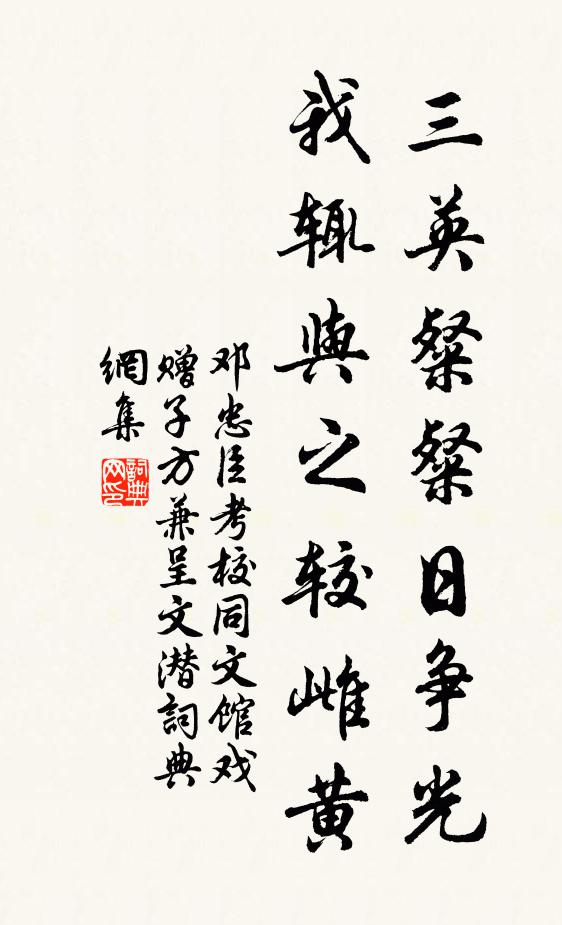 三英粲粲日争光
我辄與之较雌黄
邓忠臣考校同文馆戏
赠子方兼呈文潜詞典
網集
詞典
网印